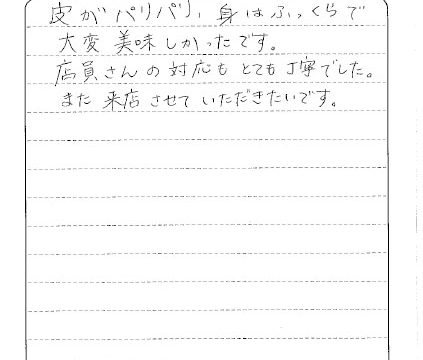 皮がパリパリ、身はふっくらで
大変美味しかったです。
店員さんの対応もとても丁寧でした。
また来店させていただきたいです。